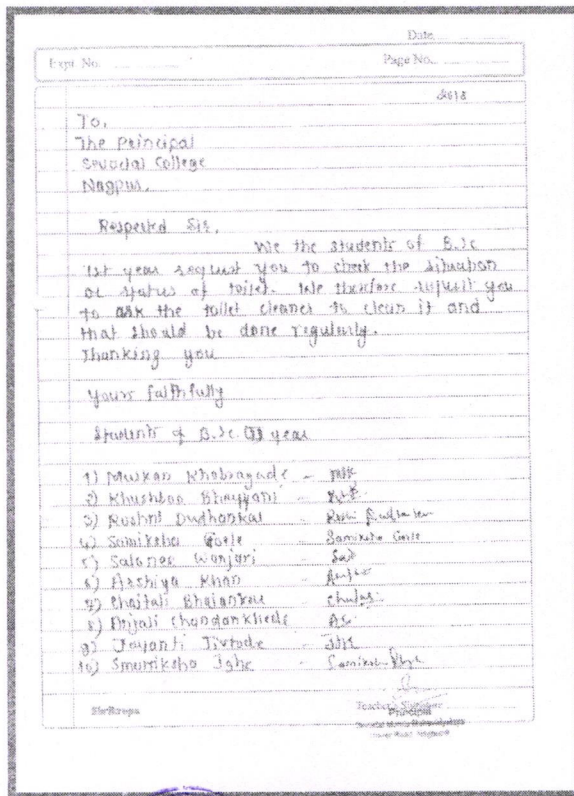 Date
Expt. No.
Page No.
2018
To,
The Principal
Sevadal College
Nagpur.
Respected Sir,
We the students of B.Sc
1st year request you to check the situation
or status of toilet. We therefore request you
to ask the toilet cleaner to clean it and
that should be done regularly.
Thanking you
Yours faithfully
Students of B.Sc. year
1) Muskan Khobragade -
2) Khushboo -
3) Roshni Dudhankar -
4) Samiksha Gore - Samiksha Gore
5) Salonee Wanjari -
6) Arshiya Khan -
7) Chaitali Bhalankar -
8) Anjali Chandankhede - AC
9) Jayanti Jivtode -
10) -
Shrikrupa
Teacher's Signature
Principal